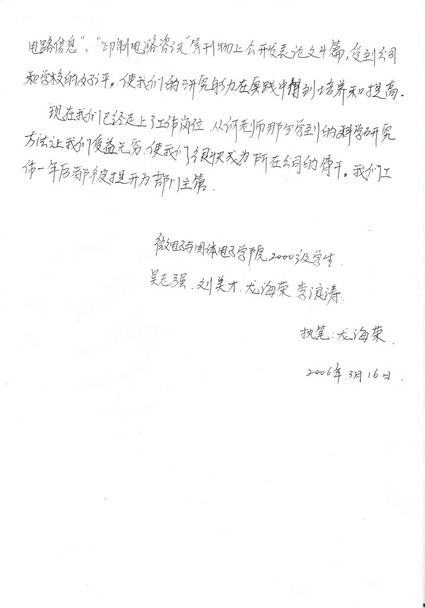 电路信息"、"印制电路资讯"等刊物上公开发表论文4篇,受到公司
和学校的好评,使我们的研究能力在实践中得到培养和提高。
现在我们已经走上工作岗位,从何老师那学到的科学研究
方法让我们受益无穷,使我们很快成为所在公司的骨干。我们工
作一年后都被提升为部门主管。
微电子与固体电子学院2000级学生
吴志强、刘美才、龙海荣、李浪涛
执笔:龙海荣
2006年3月16日